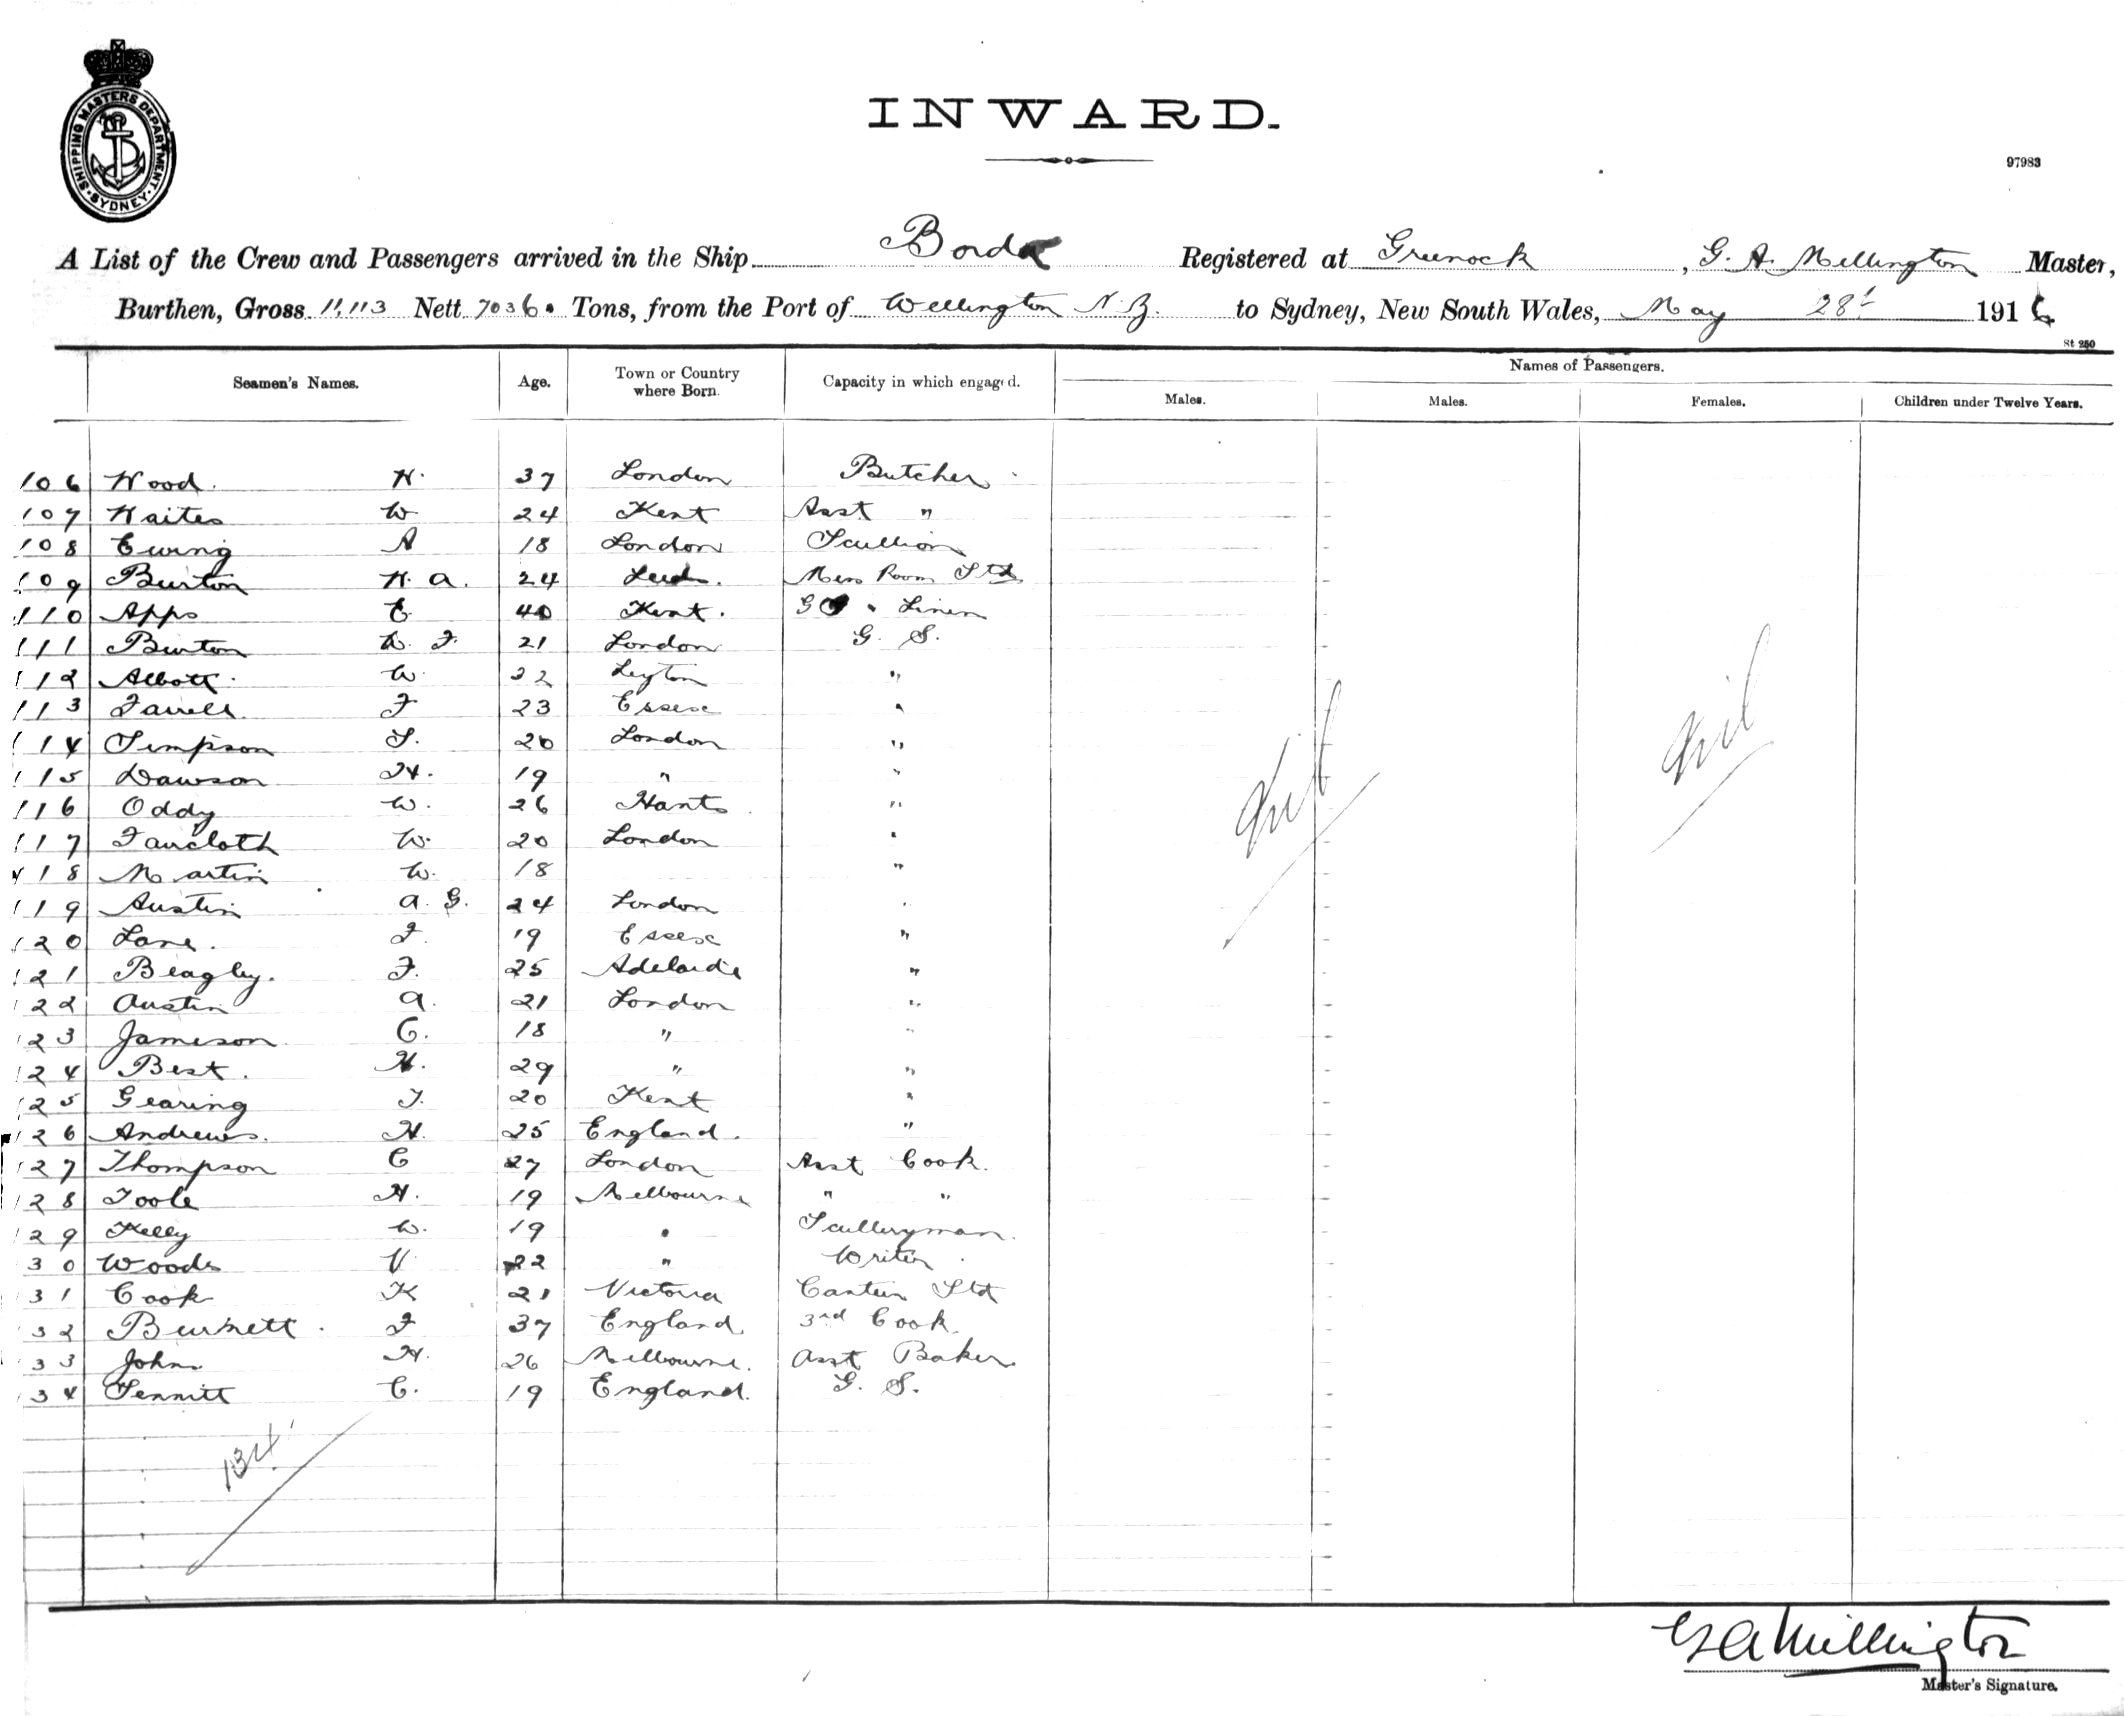 SHIPPING MASTERS DEPARTMENT SYDNEY
INWARD.
97983
A List of the Crew and Passengers arrived in the Ship Borda Registered at Greenock, G. A. Millington Master,
Burthen, Gross 11,113 Nett 7036 Tons, from the Port of Wellington N.Z. to Sydney, New South Wales, May 28th 1916
St 250
Seamen's Names. Age. Town or Country where Born. Capacity in which engaged. Names of Passengers.
Males. Males. Females. Children under Twelve Years.
106 Wood. H. 37 London Butcher
107 Waites W 24 Kent Asst "
108 Ewing A 18 London Scullion
109 Burton H. A. 24 Leeds. Mess Room Std
110 Apps E 40 Kent. G S " Linen
111 Burton W. F. 21 London G. S.
112 Abbott. W. 22 Leyton "
113 Farrell F 23 Essex "
114 Simpson S. 20 London "
115 Dawson H. 19 " "
116 Oddy W. 26 Hants "
117 Faircloth W. 20 London "
118 Martin W. 18 "
119 Austin A. G. 24 London "
120 Lane. F. 19 Essex "
121 Beagley. F. 25 Adelaide "
122 Austin A. 21 London "
123 Jameson C. 18 " "
124 Best. H. 29 " "
125 Gearing T. 20 Kent "
126 Andrews. H. 25 England. "
127 Thompson C 27 London Asst Cook.
128 Toole H. 19 Melbourne " "
129 Kelly W. 19 " Sculleryman.
130 Woods V. 22 " Writer.
31 Cook K 21 Victoria Canteen Std
32 Burnett. F 37 England 3rd Cook.
33 John H. 26 Melbourne. Asst Baker
34 Sennitt C. 19 England. G. S.
Nil
Nil
134
G A Millington
Master's Signature.